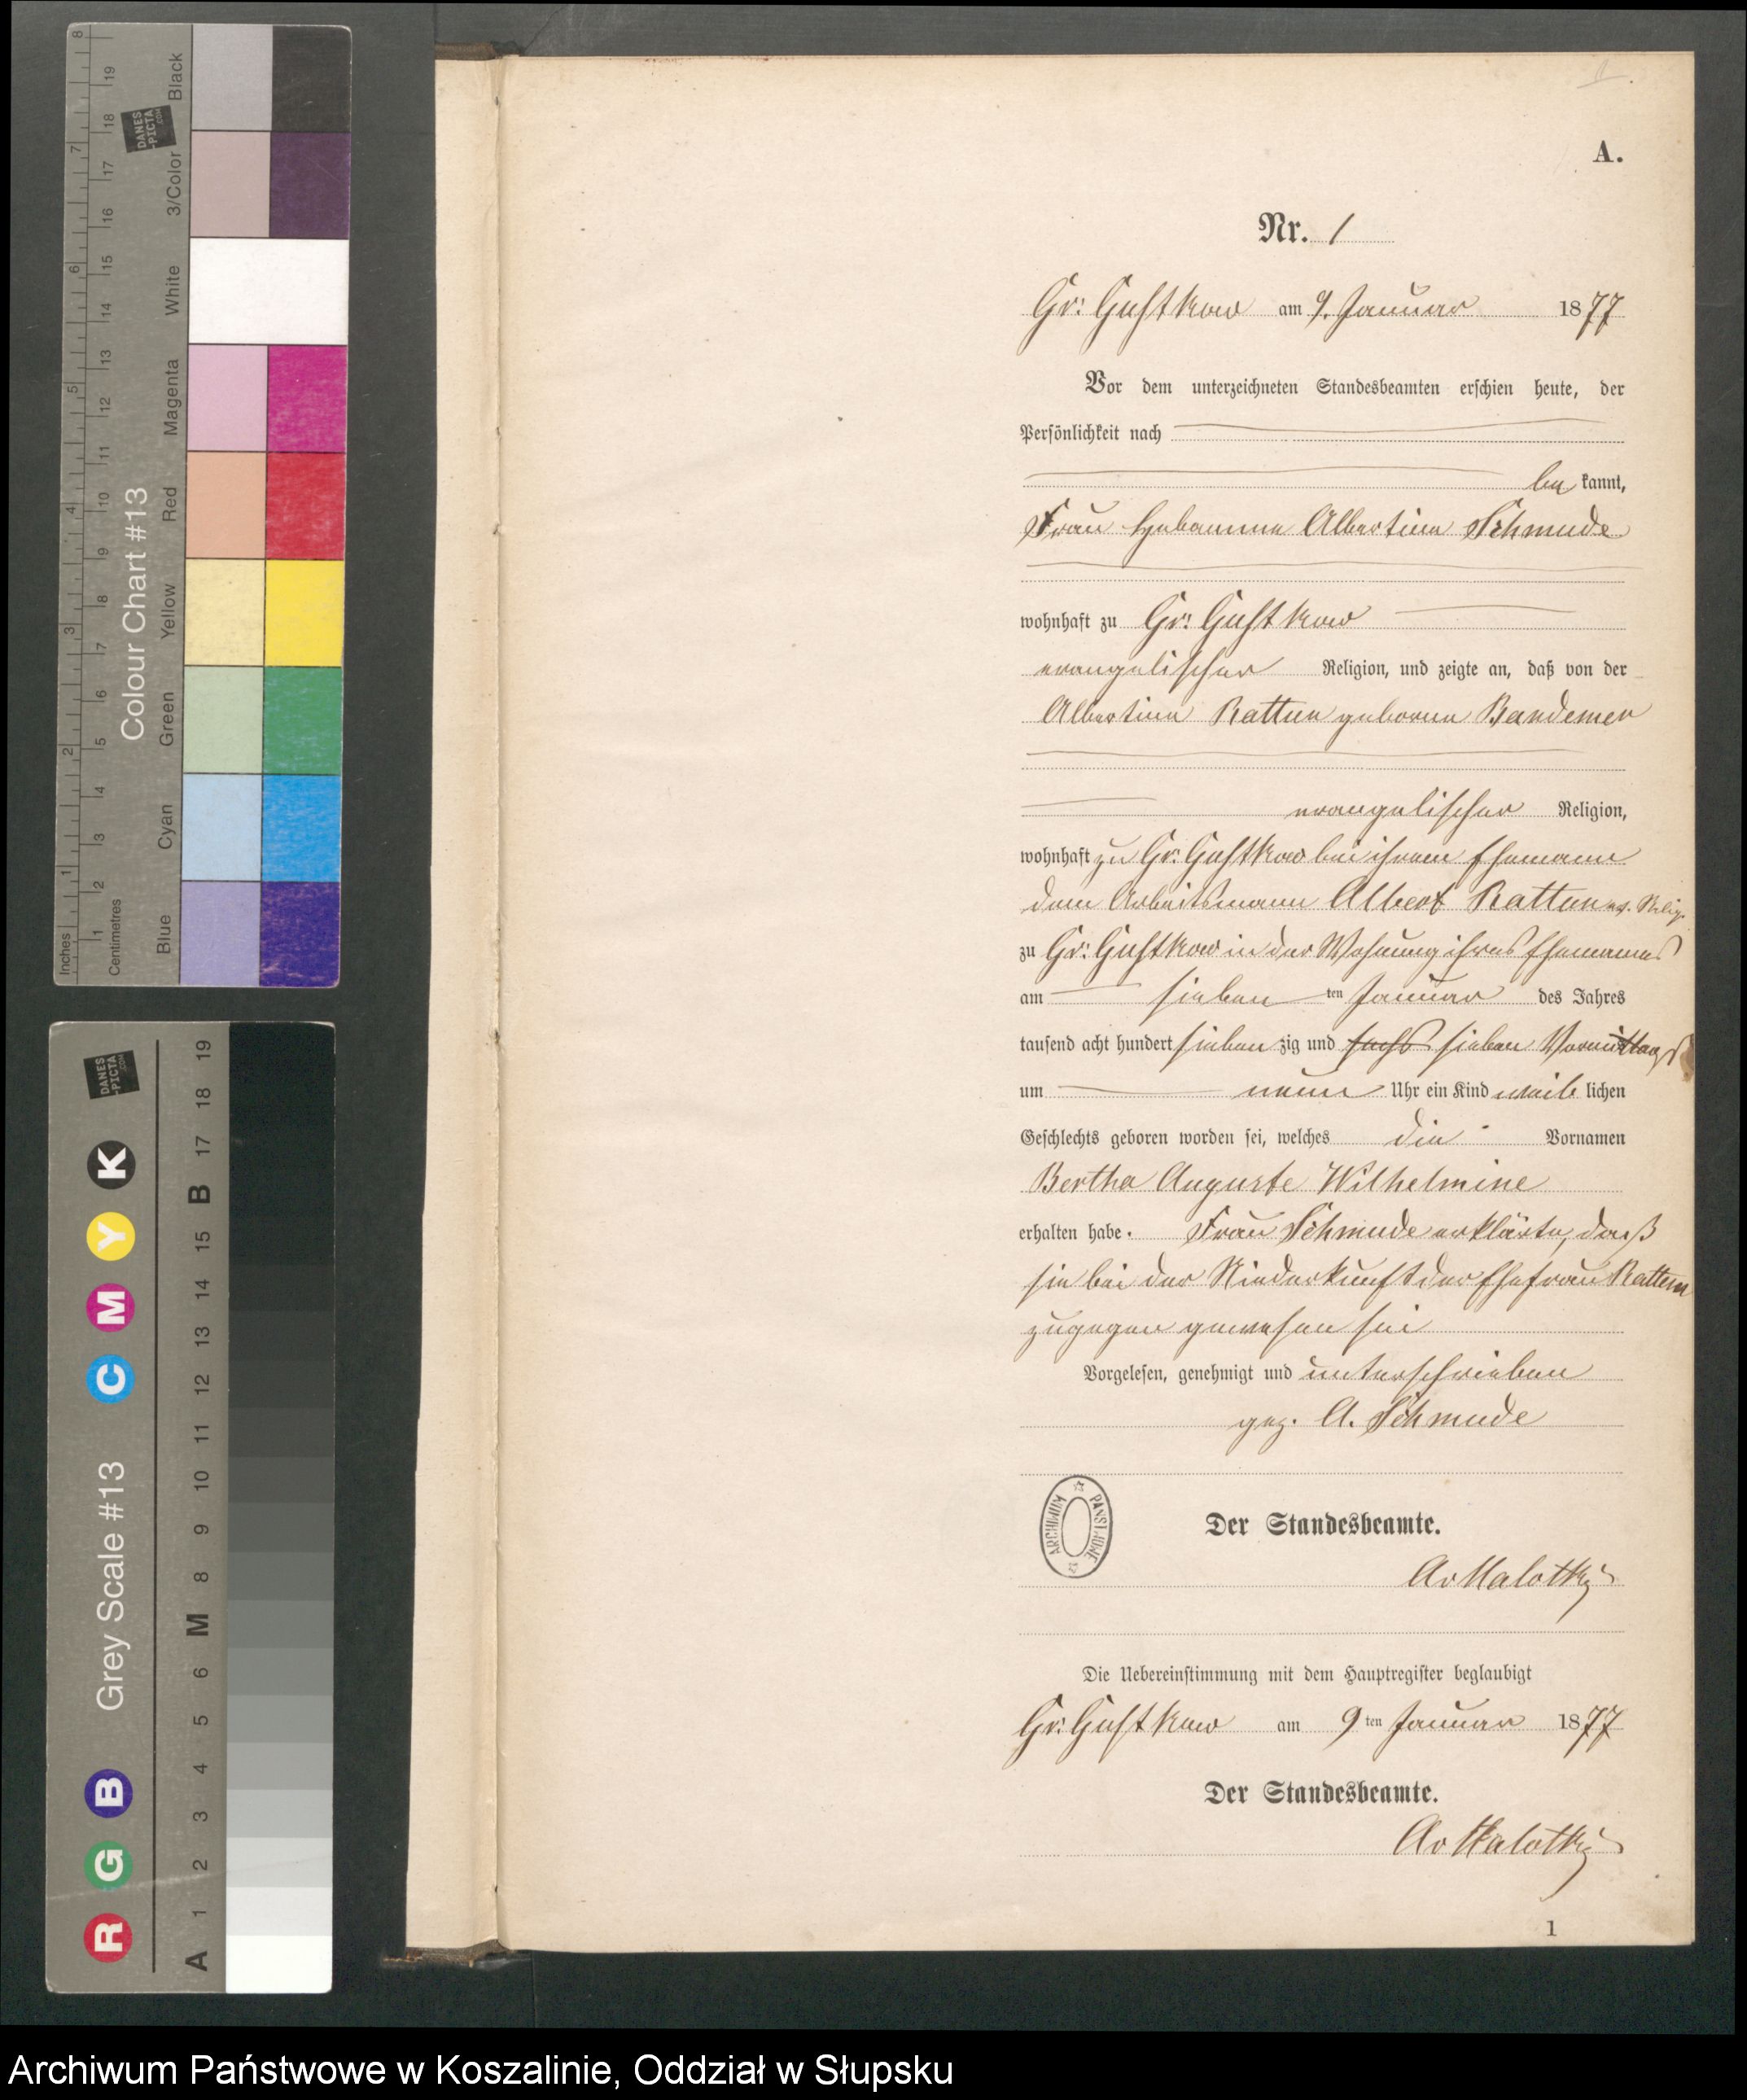 A.
Nr. 1
Gr: Gustkow am 9. Januar 1877
Vor dem unterzeichneten Standesbeamten erschien heute, der
Persönlichkeit nach
be kannt,
Frau Hebamme Albertine Schmude
wohnhaft zu Gr: Gustkow
evangelischer Religion, und zeigte an, daß von der
Albertine Rattun geborene Bandemer
evangelischer Religion,
wohnhaft zu Gr: Gustkow bei ihrem Ehemann
dem Arbeitsmann Albert Rattun ev. Relig.
zu Gr: Gustkow in der Wohnung ihres Ehemannes
am sieben ten Januar des Jahres
tausend acht hundert sieben zig und sechs sieben Vormittags
um neun Uhr ein Kind weib lichen
Geschlechts geboren worden sei, welches die Vornamen
Bertha Auguste Wilhelmine
erhalten habe. Frau Schmude erklärte, daß
sie bei der Niederkunft der Ehefrau Rattun
zugegen gewesen sei
Vorgelesen, genehmigt und unterschrieben
gez. A. Schmude
ARCHIWUM PAŃSTWOWE
Der Standesbeamte.
Av Malotky
Die Uebereinstimmung mit dem Hauptregister beglaubigt
Gr: Gustkow am 9 ten Januar 1877
Der Standesbeamte.
Av Malotky
1
Colour Chart #13
Inches 1 2 3 4 5 6 7 8
Centimetres 1 2 3 4 5 6 7 8 9 10 11 12 13 14 15 16 17 18 19
Blue Cyan Green Yellow Red Magenta White 3/Color Black
DANES
-PICTA
.COM
Grey Scale #13
R G B C M Y K
A 1 2 3 4 5 6 M 8 9 10 11 12 13 14 15 B 17 18 19
DANES
-PICTA
.COM
Archiwum Państwowe w Koszalinie, Oddział w Słupsku